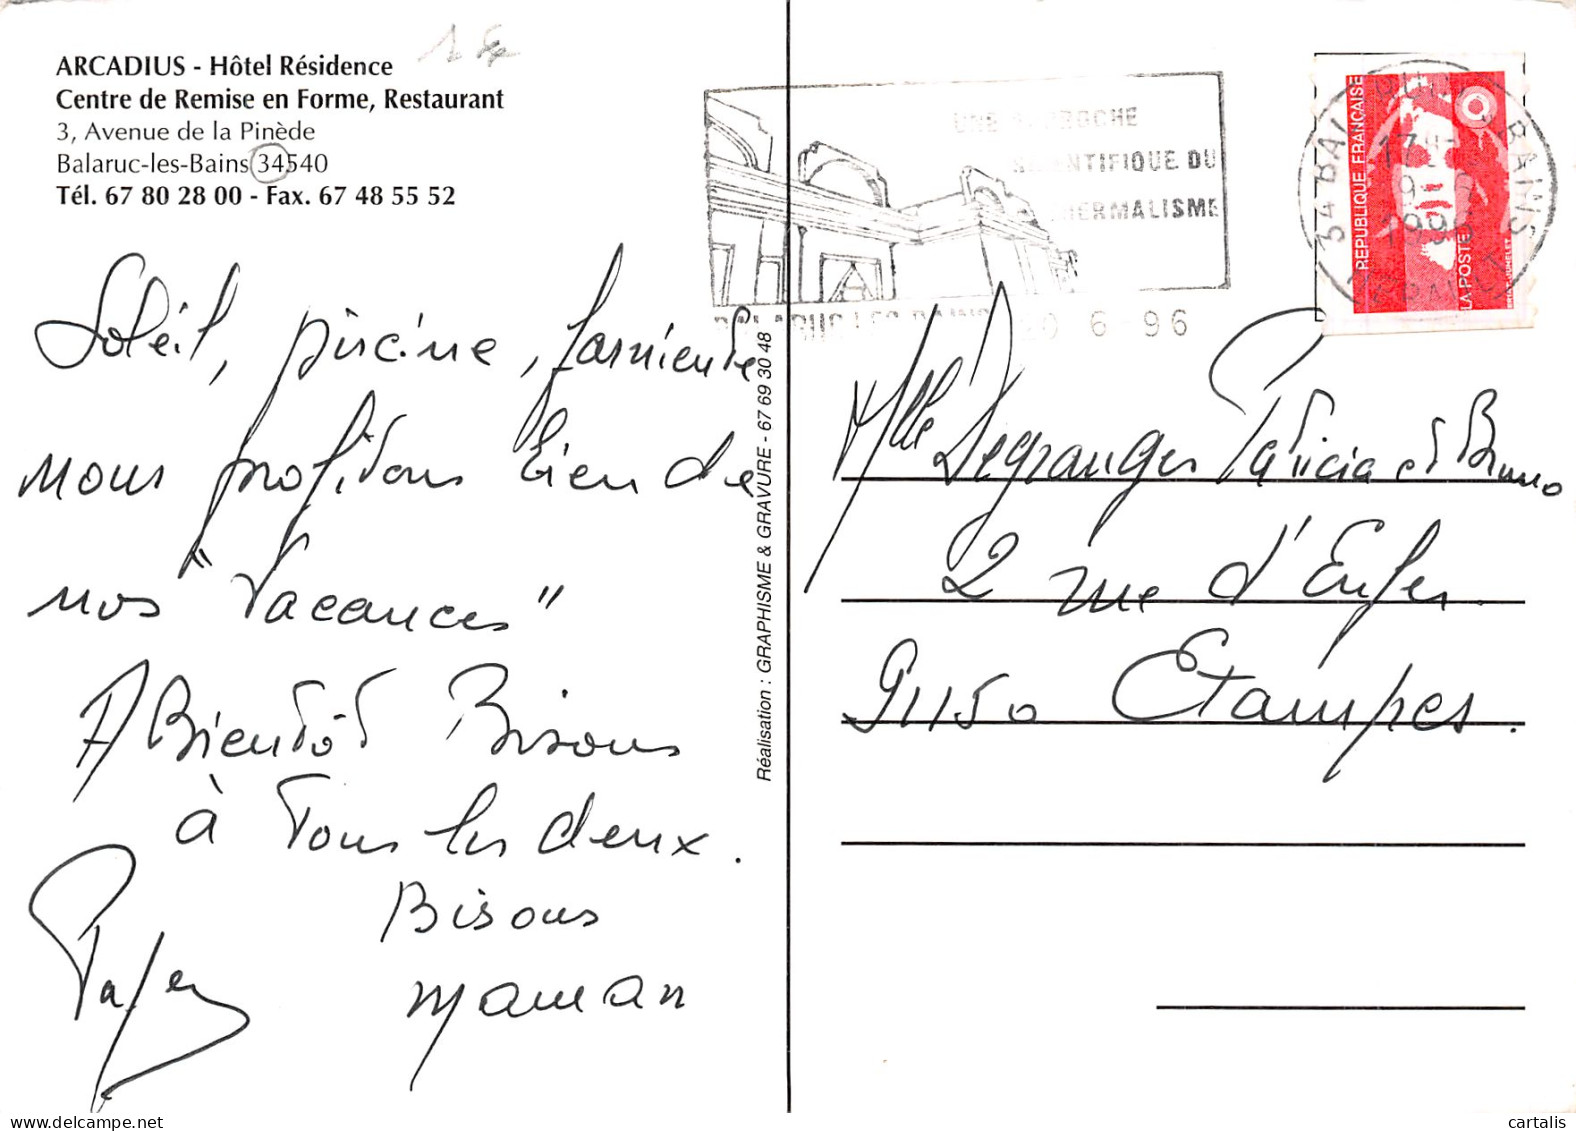 ARCADIUS - Hôtel Résidence
Centre de Remise en Forme, Restaurant
3, Avenue de la Pinède
Balaruc-les-Bains 34540
Tél. 67 80 28 00 - Fax. 67 48 55 52
Soleil, piscine, farniente
nous profitons bien de
nos "Vacances"
A Bientôt Bisous
à Tous les deux.
Bisous
maman
Réalisation : GRAPHISME & GRAVURE - 67 69 30 48
UNE APPROCHE
SCIENTIFIQUE DU
THERMALISME
BALARUC LES BAINS 6 - 96
REPUBLIQUE FRANÇAISE
LA POSTE
34 BALARUC BAINS
Mlle Degranges Patricia et Bruno
2 rue d'Enfer
91150 Etampes.
delcampe.net
cartalis